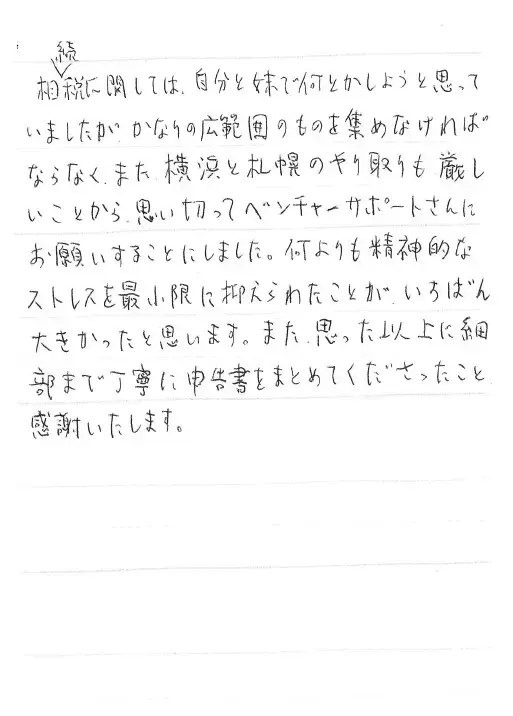 相続税に関しては、自分と妹で何とかしようと思って
いましたが、かなりの広範囲のものを集めなければ
ならなく、また、横浜と札幌のやり取りも厳し
いことから、思い切ってベンチャーサポートさんに
お願いすることにしました。何よりも精神的な
ストレスを最小限に抑えられたことが、いちばん
大きかったと思います。また、思った以上に細
部まで丁寧に申告書をまとめてくださったこと
感謝いたします。